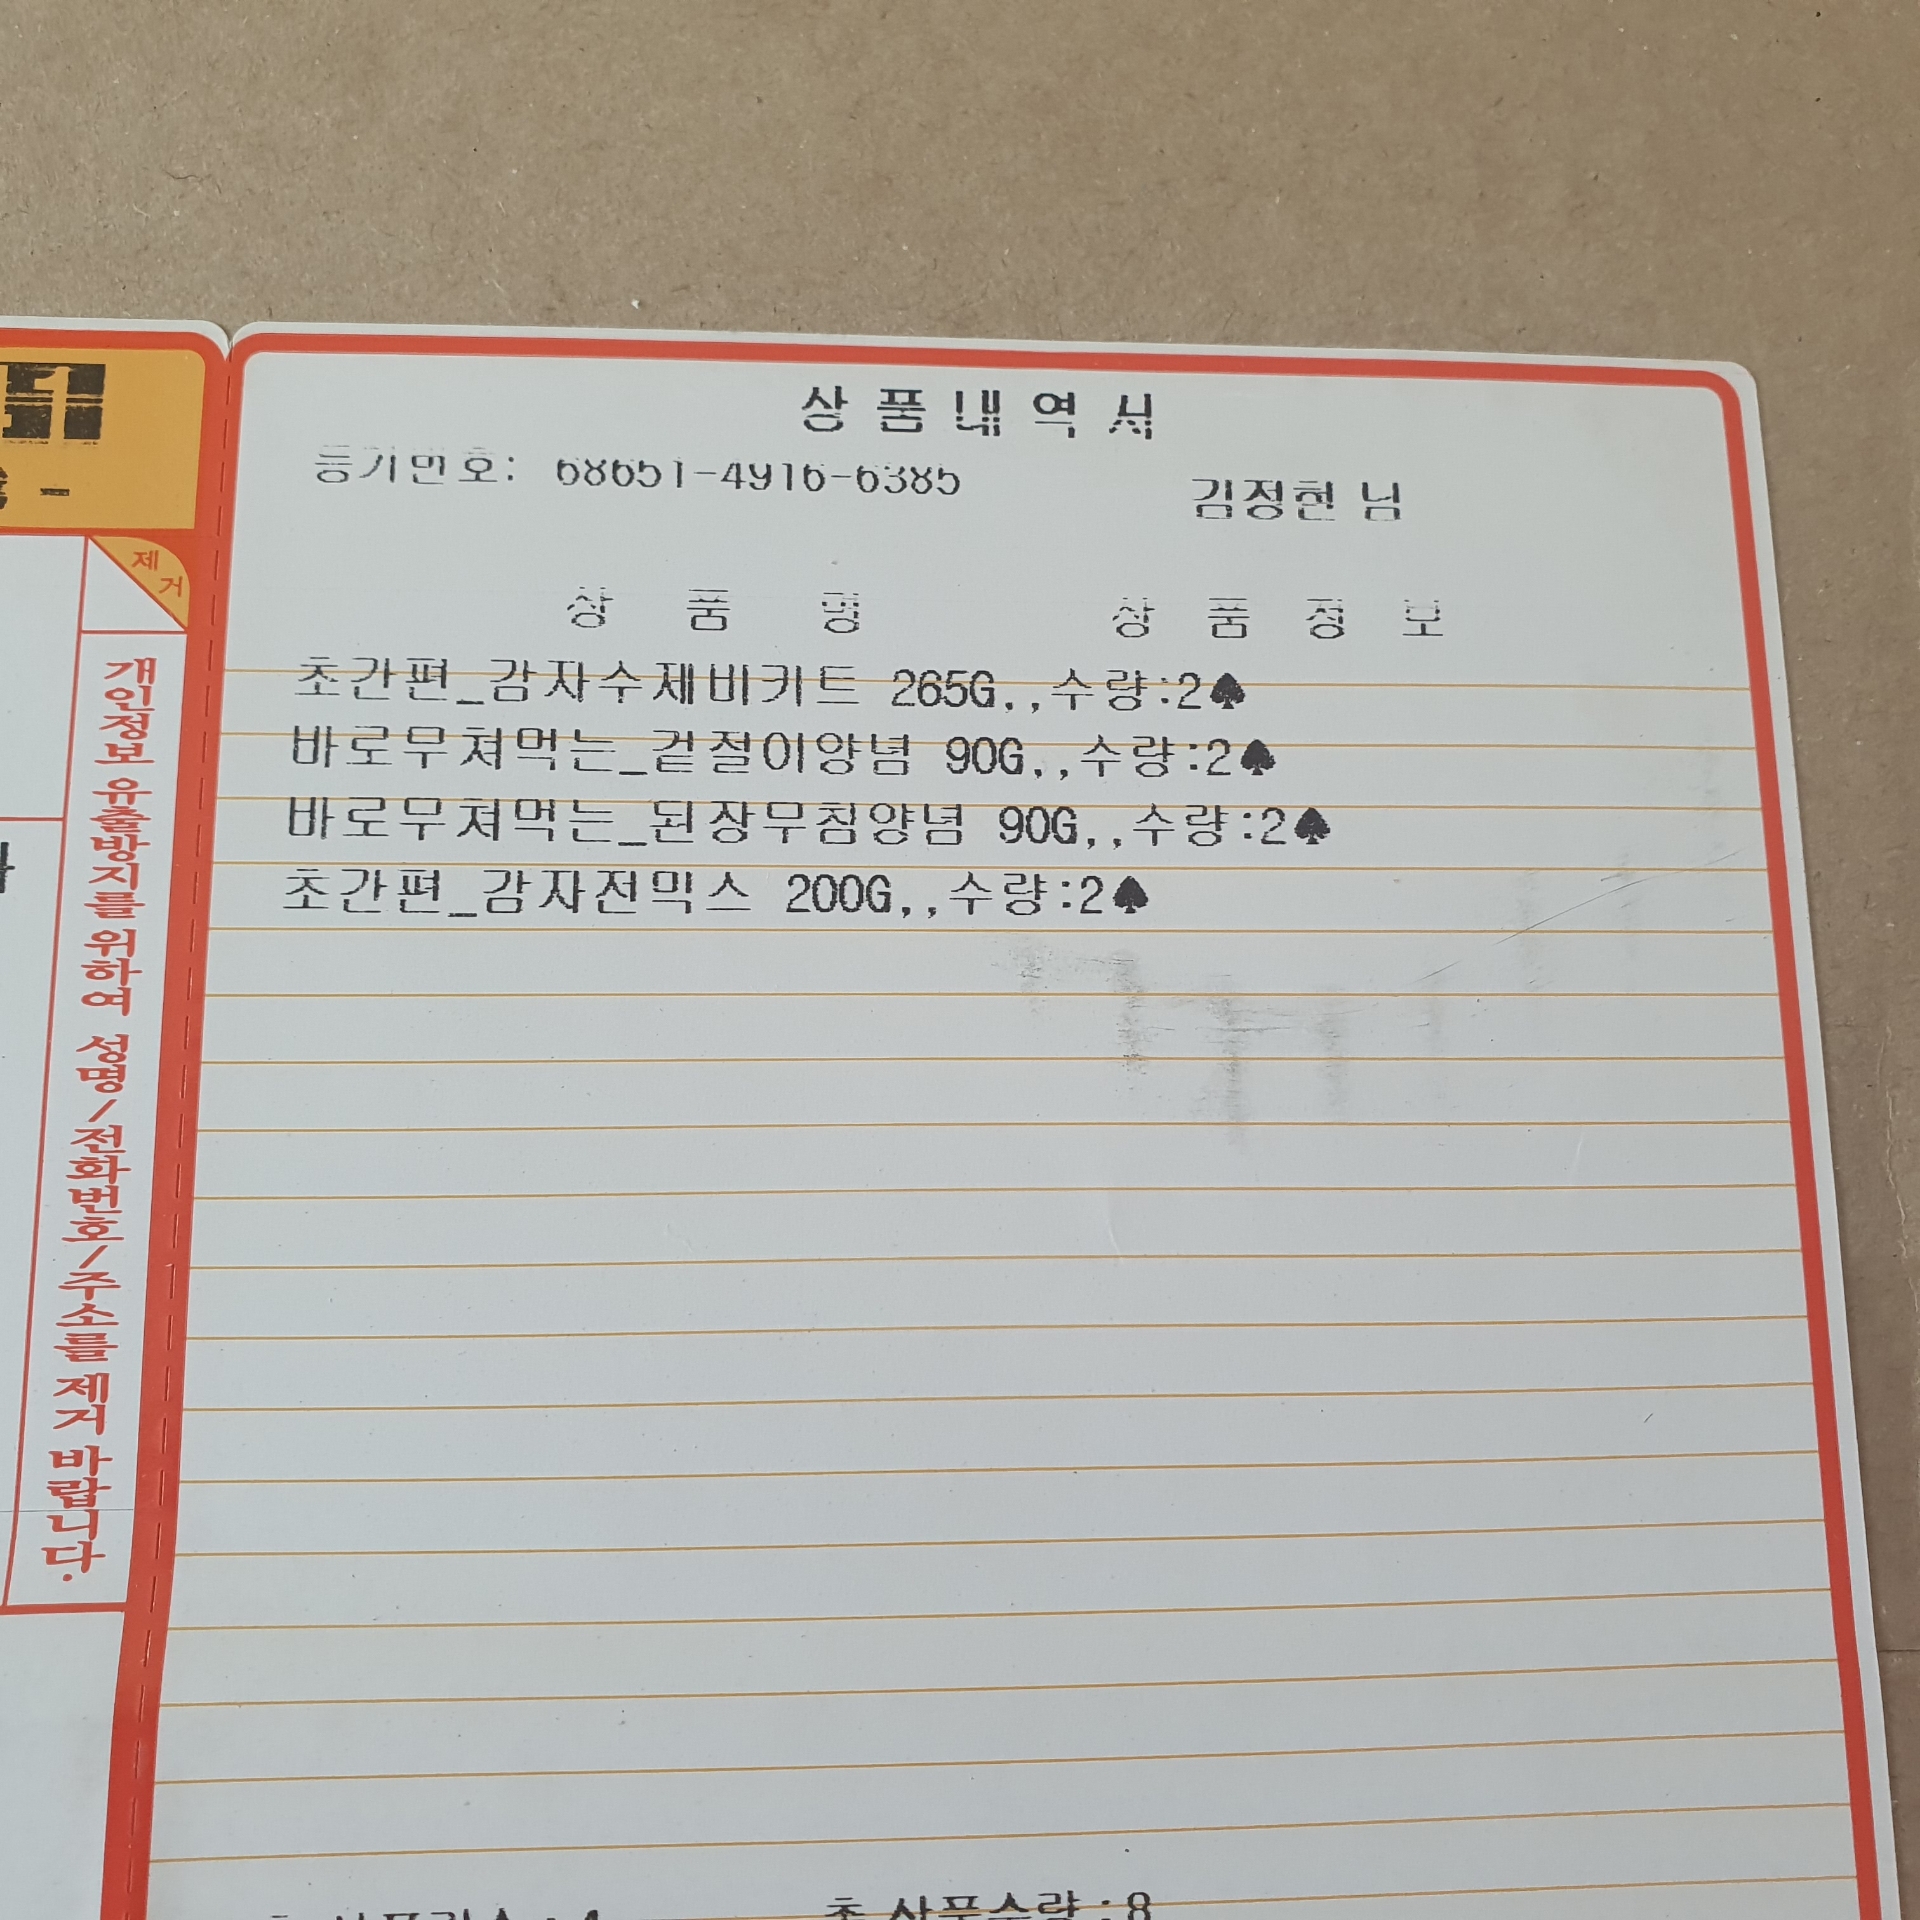 상 품 내 역 서
등기번호: 68651-4916-6385
김정현 님
상 품 명 상 품 정 보
초간편_감자수제비키트 265G,,수량:2♠
바로무쳐먹는_겉절이양념 90G,,수량:2♠
바로무쳐먹는_된장무침양념 90G,,수량:2♠
초간편_감자전믹스 200G,,수량:2♠
총 상품수량:8
제거
개인정보 유출방지를 위하여 성명/전화번호/주소를 제거 바랍니다.